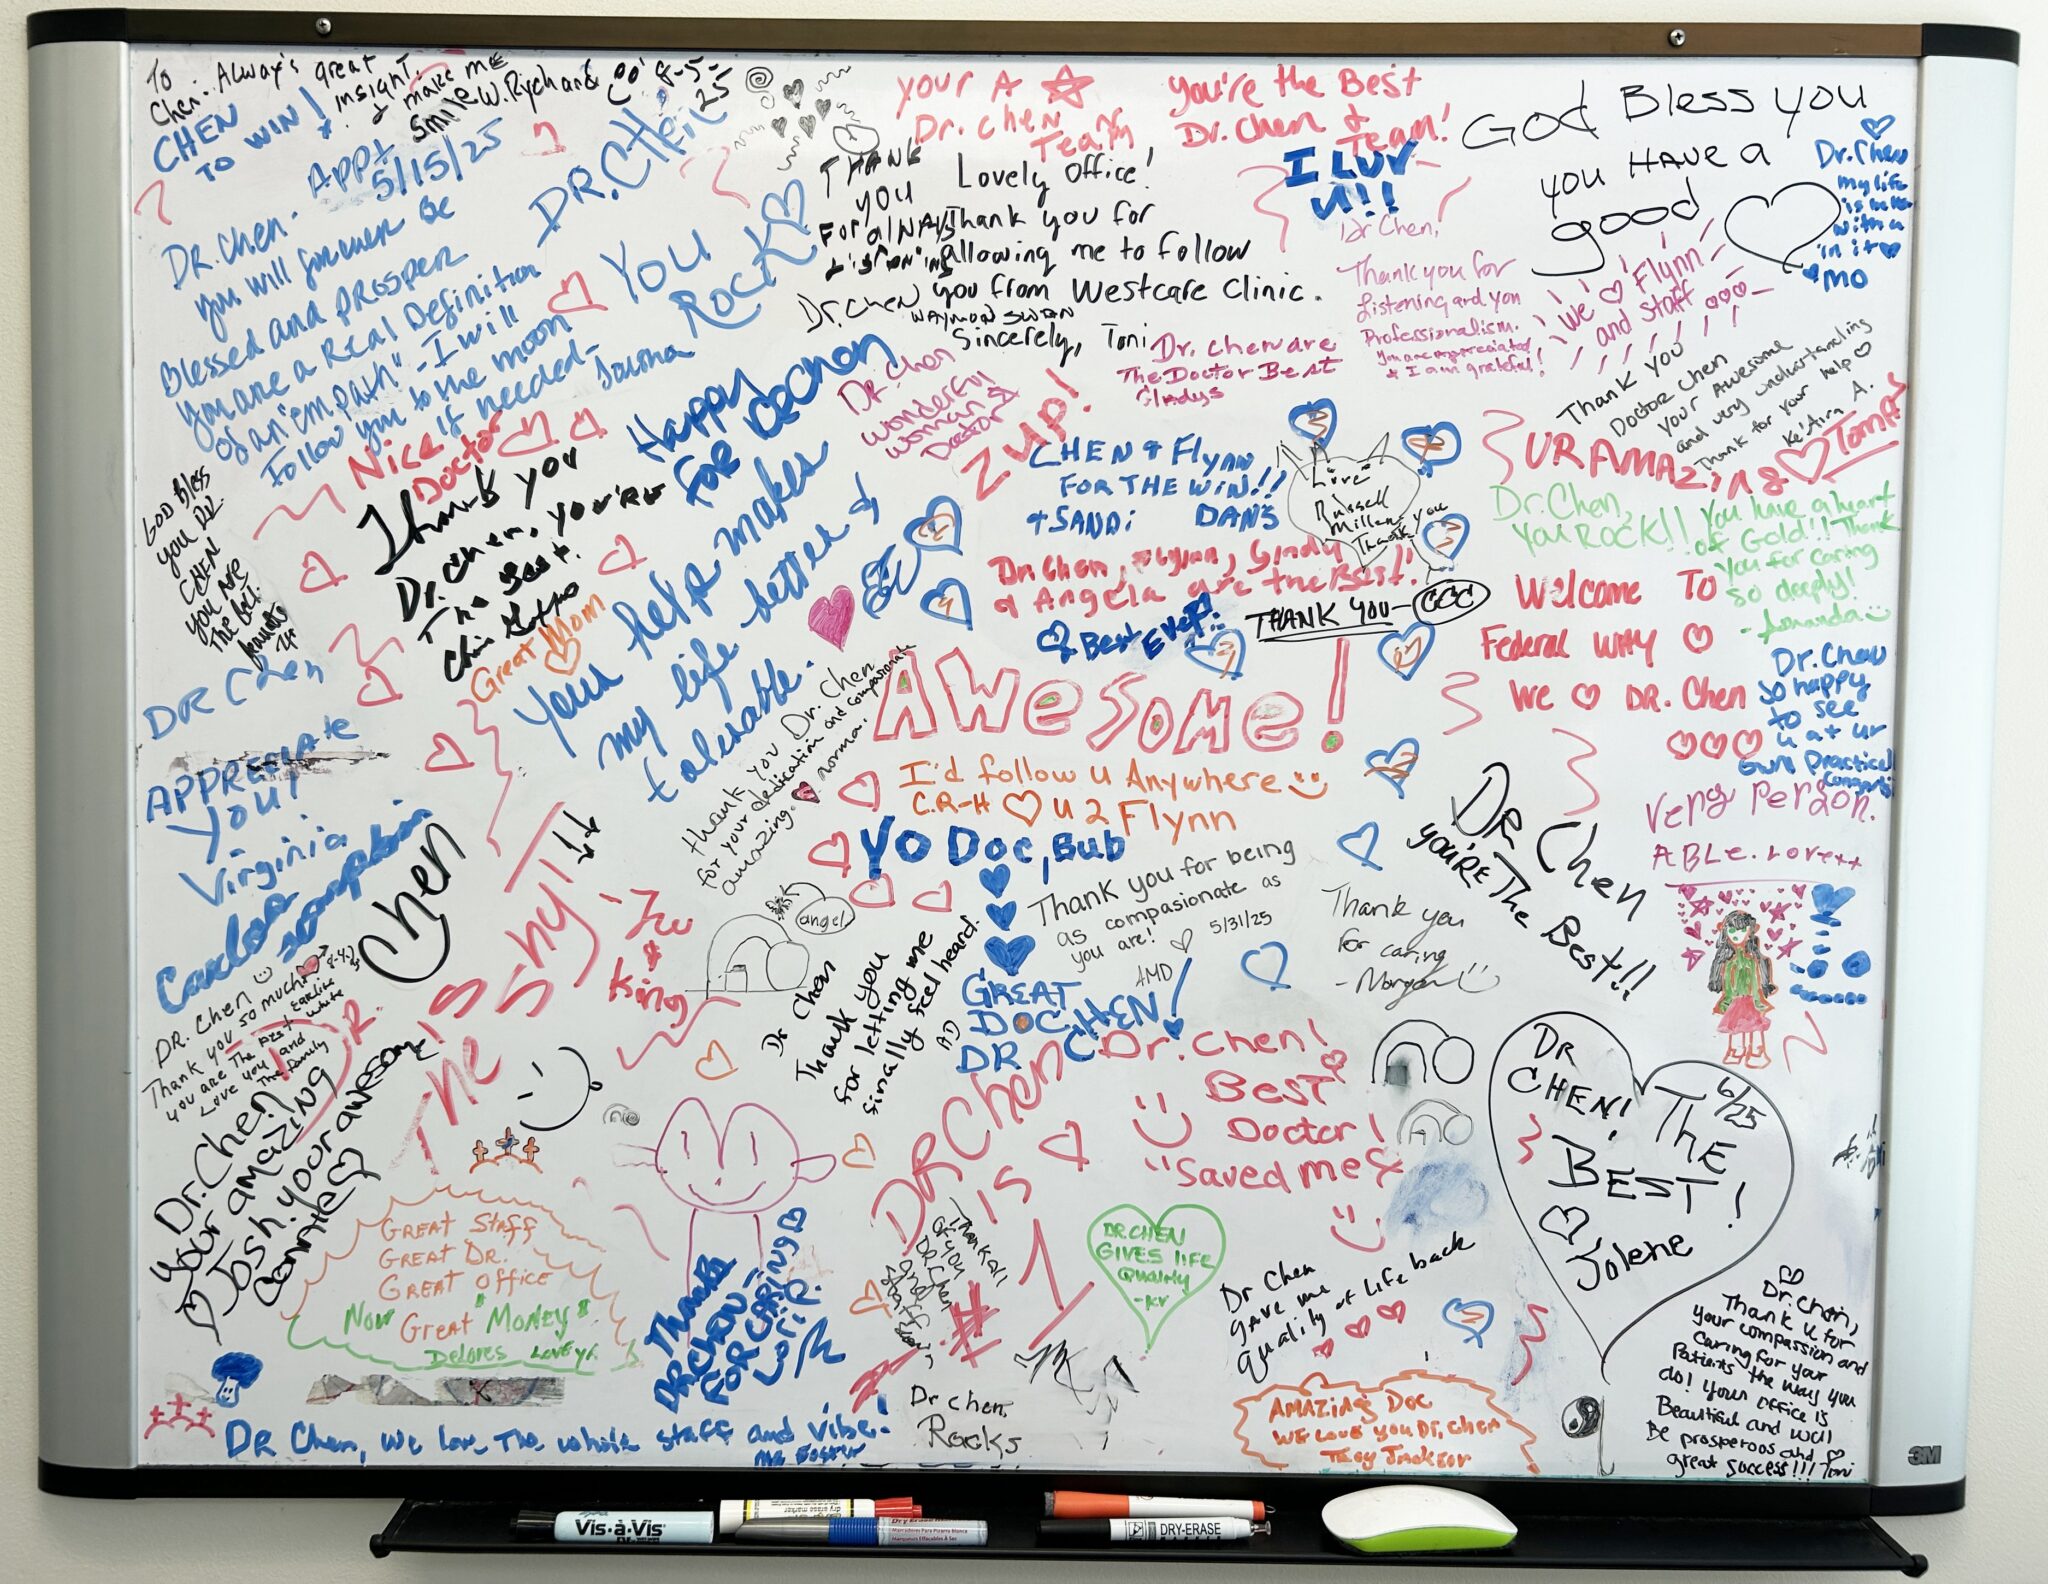 To
Chen.. Always great
insight.
I make me
smile W. Rychard
8-5-
25
CHEN
TO WIN!
APPt
5/15/25
DR. Chen.
you will forever be
Blessed and prosper
You are a Real Definition
of an "empath" - I will
Follow you to the moon
if needed -
DR. CHEN
YOU
ROCK
THANK
YOU
FOR AlWAYS
Listioning
Dr. CHEN
WAYMON SWAN
your A
Dr. Chen
Team
You're the Best
Dr. Chen &
Team!
Lovely Office!
Thank you for
allowing me to follow
you from Westcare Clinic.
Sincerely, Toni
I LUV
U!!!
Dr Chen,
Thank you for
listening and you
Professionalism.
You are appreciated
& I am grateful!
GOD Bless you
you HAVE a
good
Dr. Chen
my life
is better
with u
in it
MO
We Flynn
and Staff
Thank you
Doctor Chen
your Awesome
and very understanding
Thank for your help
Ke'Aira A.
Dr. Chen are
The Doctor Best
Gladys
Dr. Chen
wonderful
woman &
Doctor
Happy
FOR
2 UP!
CHEN & Flynn
FOR THE WIN!!
& SANDi DAN'S
Love
Russell
Miller
Thank you
UR AMAZing
Dr. Chen,
You ROCK!! You have a heart
of Gold!! Thank
you for caring
so deeply!
- Amanda
Nice
Doctor
Thank you
Dr. Chen, you're
The Best.
GOD Bless
you DR
CHEN
you ARE
The best
Great Mom
Your help makes
my life better &
tolerable.
Dr. Chen, Flynn, Sindy
& Angela are the Best!!
Best EVER!!
THANK YOU - CCC
Welcome To
Federal Way
We DR. Chen
Dr. Chen
so happy
to see
u at ur
own Practice!
Congrats!
DR Chen
APPRECIATE
YOU!
Virginia
Carlos
Thank you Dr. Chen
for your dedication and compassionate
amazing. norma.
AWeSoMe!
I'd follow u Anywhere
C.R-H U 2 Flynn
YO Doc, Bub
Very Person.
ABLe. Love++
DR Chen
you're The Best!!
Chen
Thank you for being
as compasionate as
you are! 5/31/25
AMD
Thank you
for caring
- Morgan
angel
Dr Chen
Thank you
for letting me
finally feel heard.
AD
GREAT
DOC
DR CHEN!
DR. Chen
Thank you so much!
you are The Best
Love you and
The family
DR.
IS
The SHYT!!
King
Dr. Chen
your amazing
Josh. your awesome!
Connie
Dr. Chen!
BEST
Doctor!
"Saved me"
DR CHEN!
THE
BEST!
6/25
Jolene
DR Chen
is
#1
Thank all
of you
DR Chen
and
staff
DR CHEN
GIVES life
Quality
-KV
Dr Chen
gave me
quality of life back
GREAT Staff
GREAT DR.
GREAT office
Now Great "Money"
Delores Love ya
Thanks
DR CHEN
FOR CARING
Lori P.
Dr. Chen,
Thank u for
your compassion and
caring for your
Patients the way you
do! Your office is
Beautiful and will
Be prosperous and
great success!!! Toni
DR Chen, We love The whole staff and vibe!
Mr Foster
Dr Chen
Rocks
AMAZING Doc
WE LOVE YOU DR. Chen
Troy Jackson
3M
Vis-à-Vis
DRY-ERASE